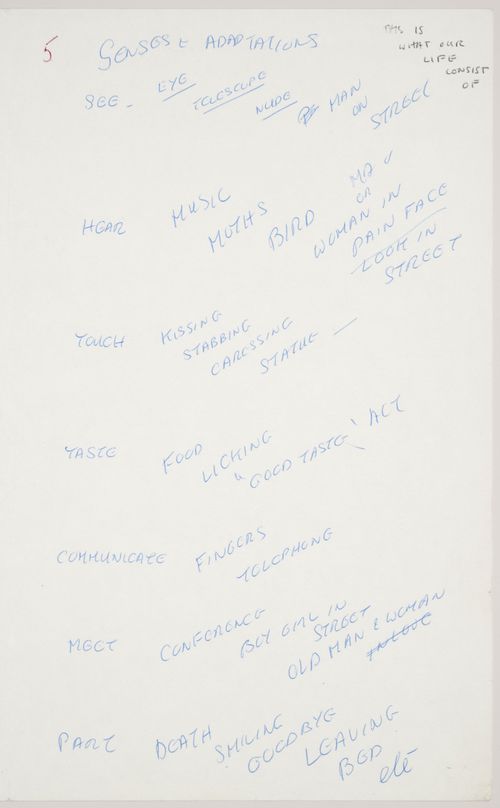 5
SENSES & ADAPTATIONS
THIS IS
WHAT OUR
LIFE
CONSIST
OF
SEE - EYE TELESCOPE NUDE MAN ON STREET
HEAR MUSIC MOTHS BIRD MAN OR WOMAN IN PAIN FACE
LOOK IN
STREET
TOUCH KISSING
STABBING
CARESSING
STATUE —
TASTE FOOD
LICKING
"GOOD TASTE" ACT
COMMUNICATE FINGERS
TELEPHONE
MEET CONFERENCE
BOY GIRL IN
STREET
OLD MAN & WOMAN
IN LOVE
PART DEATH
SMILING
GOODBYE
LEAVING
BED
etc